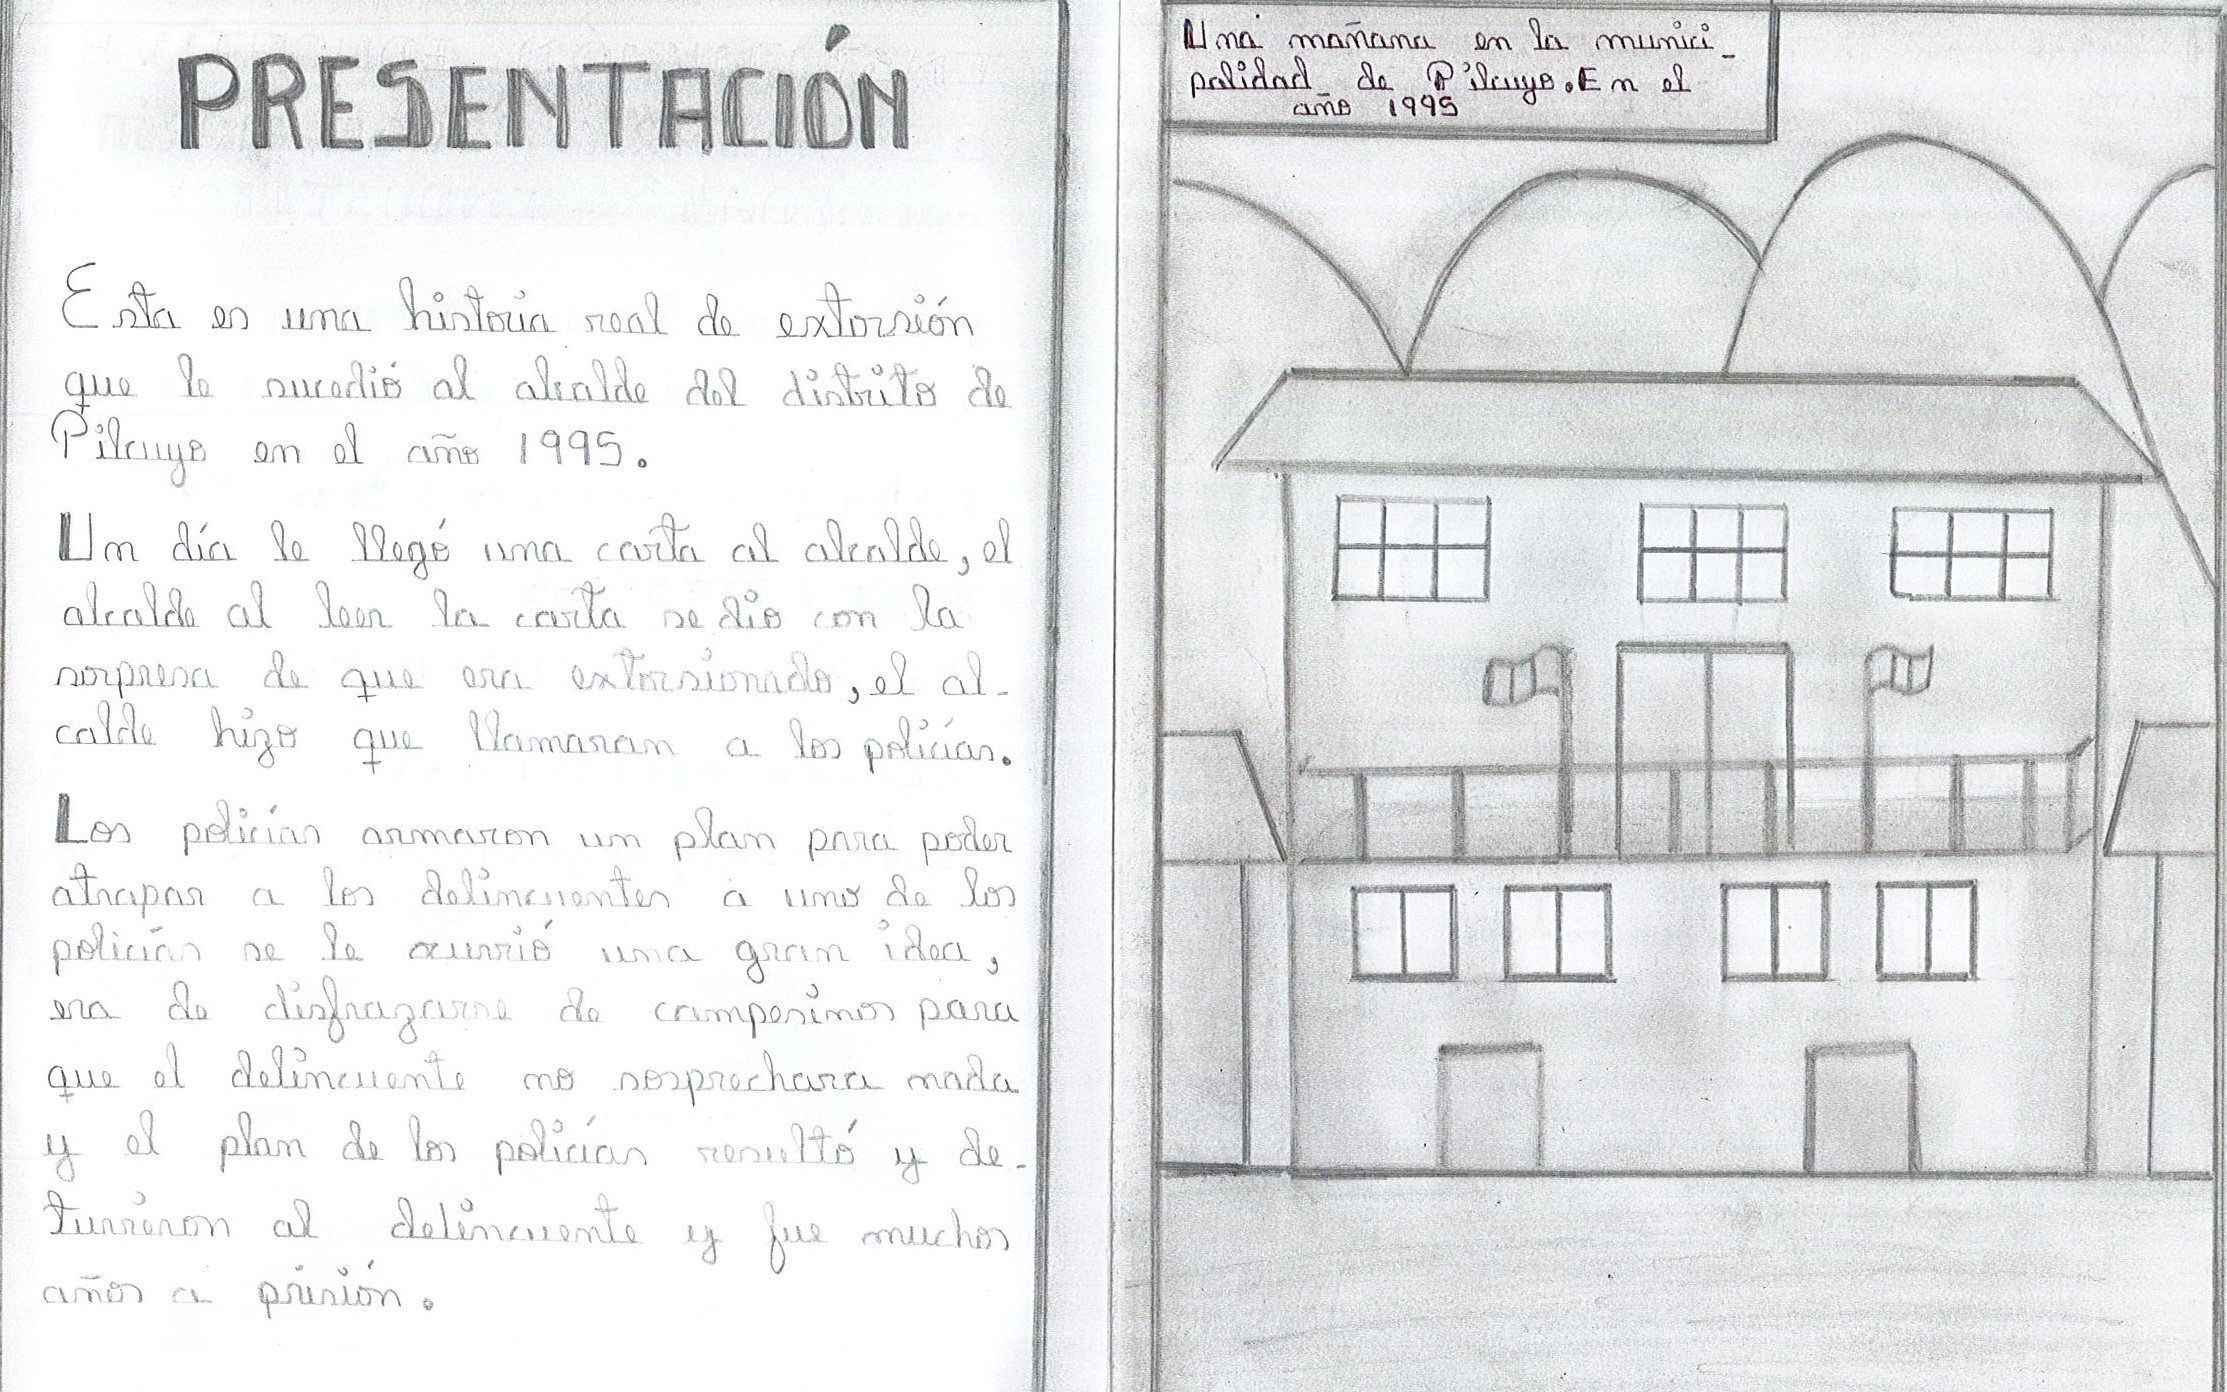 PRESENTACIÓN
Esta es una historia real de extorsión
que le sucedió al alcalde del distrito de
Pilcuyo en el año 1995.
Un día le llegó una carta al alcalde, el
alcalde al leer la carta se dio con la
sorpresa de que era extorsionado, el al-
calde hizo que llamaran a los policías.
Los policías armaron un plan para poder
atrapar a los delincuentes a uno de los
policías se le ocurrió una gran idea,
era de disfrazarse de campesinos para
que el delincuente no sosprechara nada
y el plan de los policías resultó y de-
tuvieron al delincuente y fue muchos
años a prisión.
Una mañana en la munici-
palidad de Pilcuyo. En el
año 1995